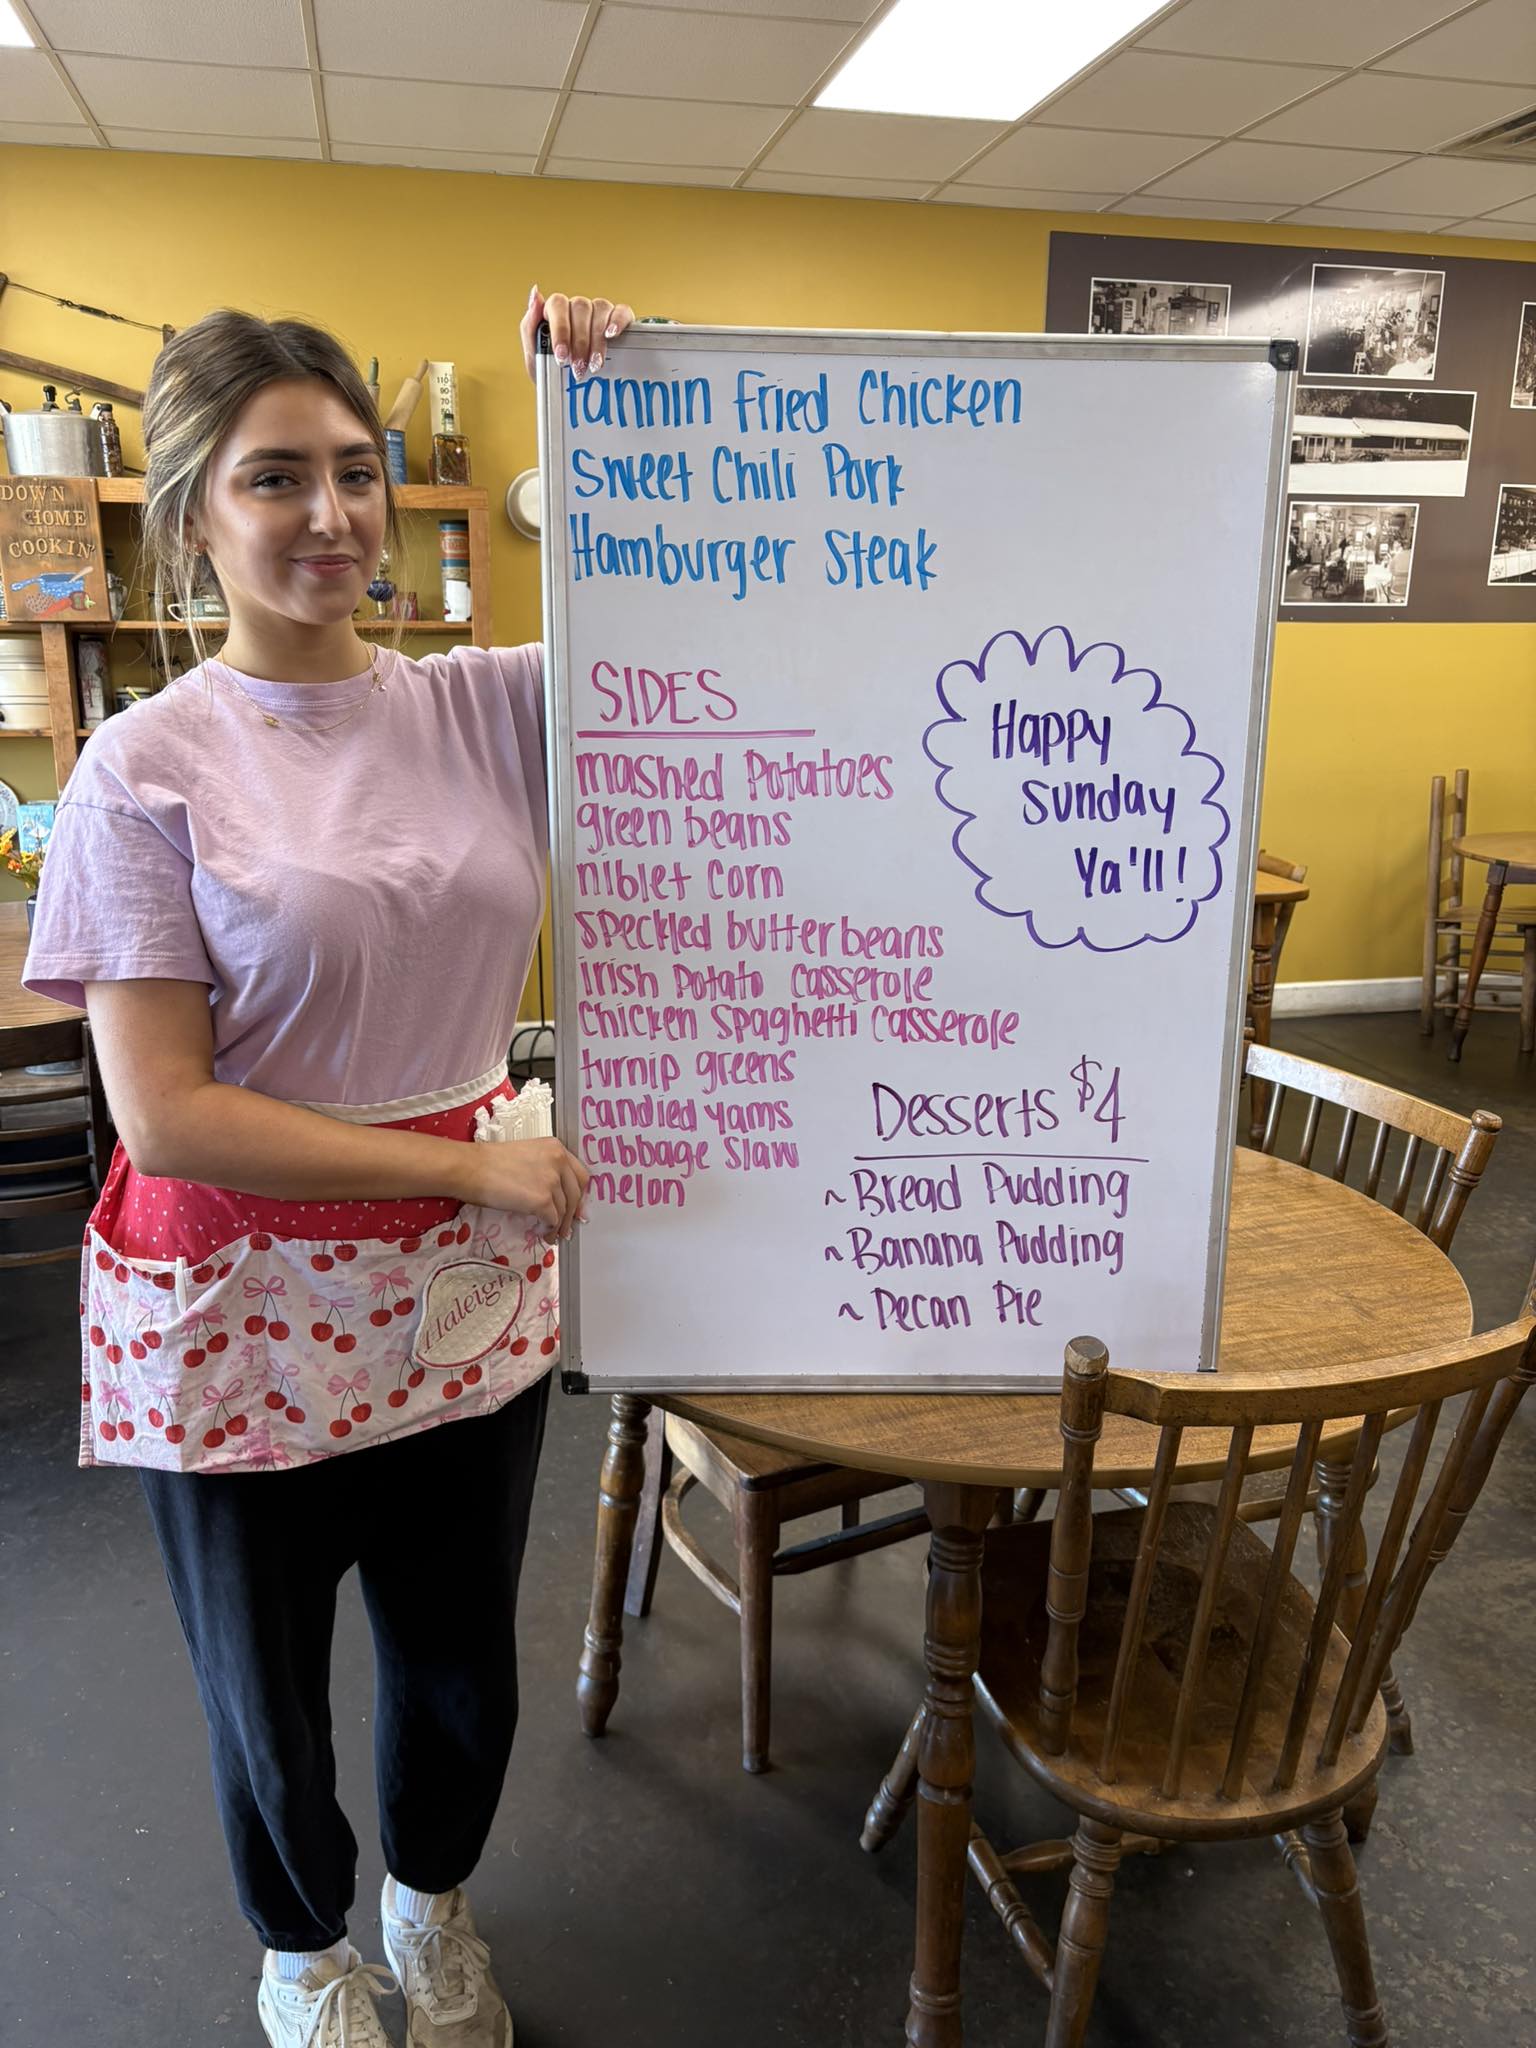 Fannin Fried Chicken
Sweet Chili Pork
Hamburger Steak
SIDES
mashed Potatoes
green beans
niblet Corn
Speckled butterbeans
irish Potato Casserole
Chicken Spaghetti Casserole
turnip greens
Candied yams
Cabbage Slaw
melon
Happy
Sunday
Ya'll!
Desserts $4
~Bread Pudding
~Banana Pudding
~Pecan Pie
DOWN
HOME
COOKIN'
Haleigh
110
90